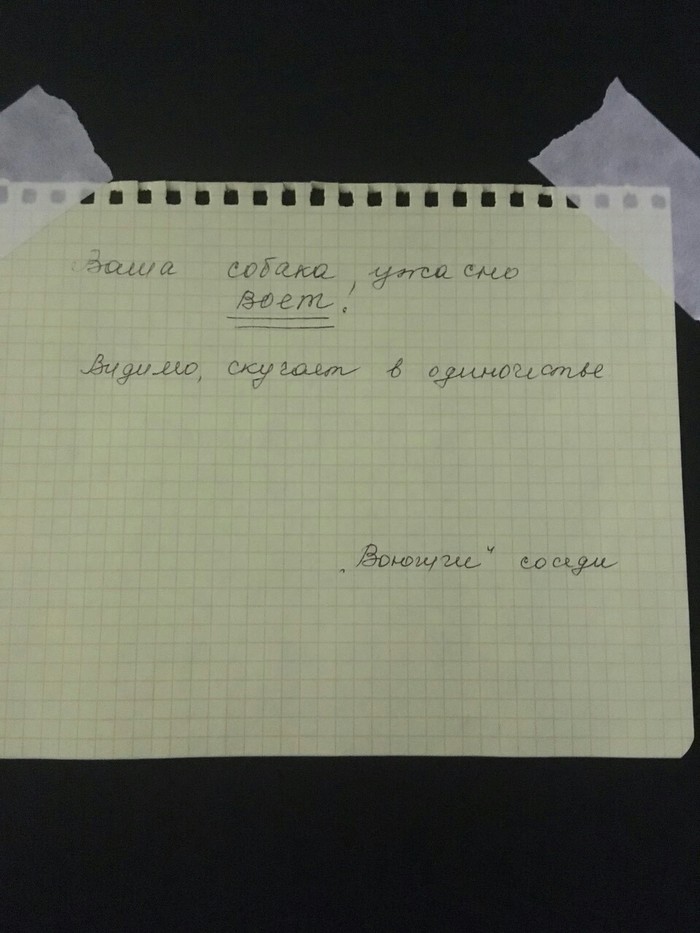 Ваша собака, ужасно
воет!
Видимо, скучает в одиночестве
„Воющие“ соседи